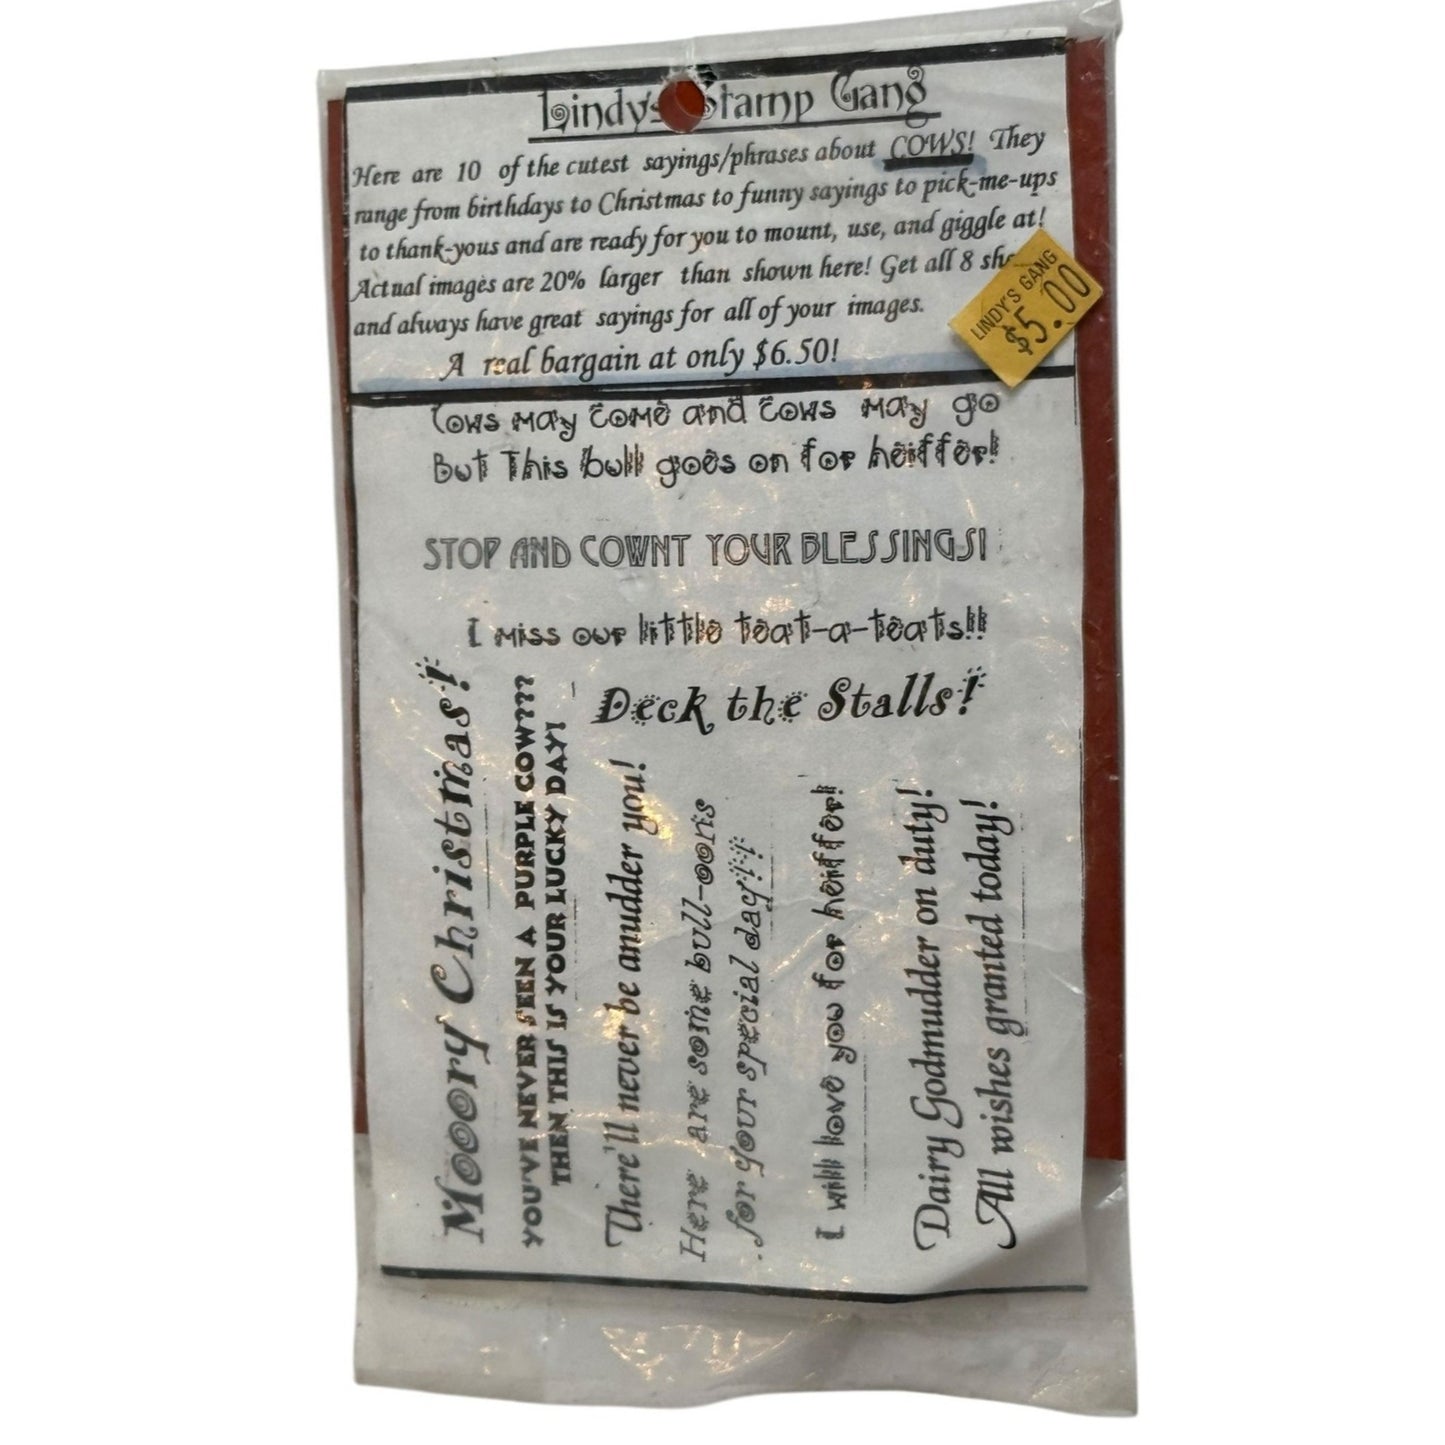 Lindy's Stamp Gang
Here are 10 of the cutest sayings/phrases about COWS! They
range from birthdays to Christmas to funny sayings to pick-me-ups
to thank-yous and are ready for you to mount, use, and giggle at!
Actual images are 20% larger than shown here! Get all 8
and always have great sayings for all of your images.
A real bargain at only $6.50!
LINDY'S GANG
$5.00
Cows may come and cows may go
But This bull goes on for heiffer!
STOP AND COWNT YOUR BLESSINGS!
I miss our little teat-a-teats!!
Deck the Stalls!
Moory Christmas!
YOU'VE NEVER SEEN A PURPLE COW???
THEN THIS IS YOUR LUCKY DAY!
There'll never be anudder you!
Here are some bull-oons
for your special day!!!
I will love you for heiffer!
Dairy Godmudder on duty!
All wishes granted today!